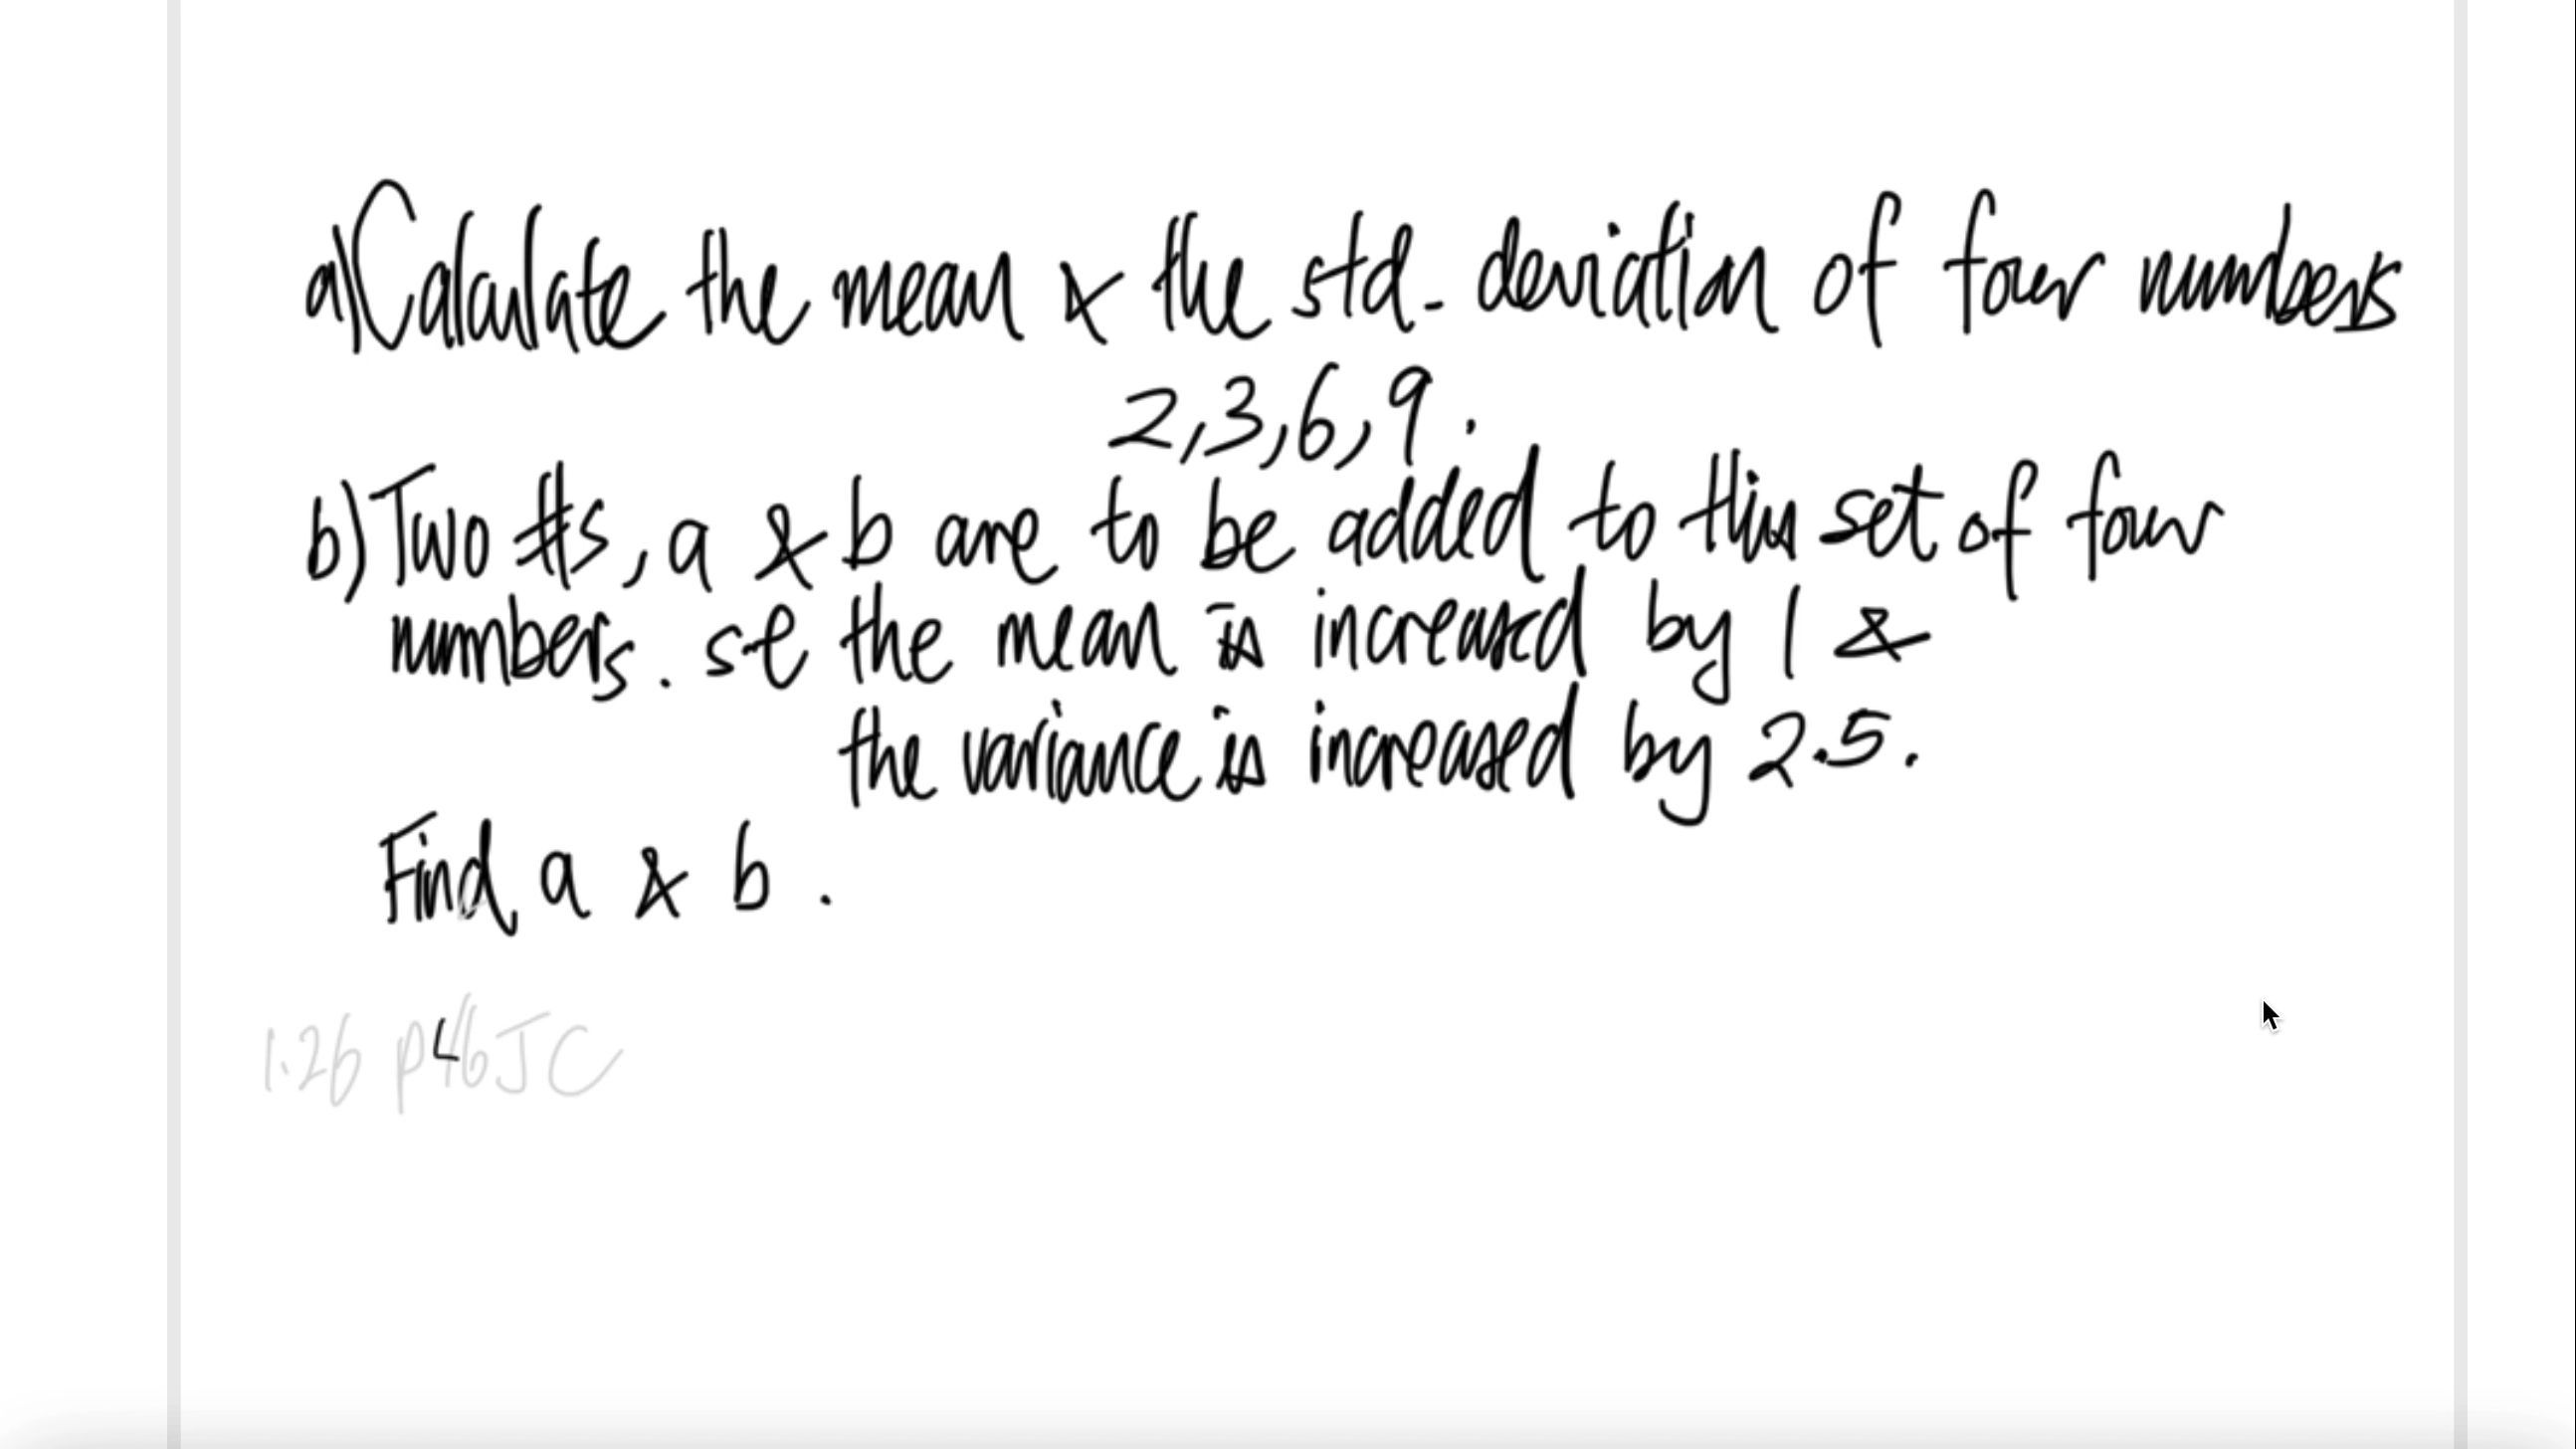 a) Calculate the mean & the std. deviation of four numbers
2,3,6,9.
b) Two #s, a & b are to be added to this set of four
numbers. st the mean is increased by 1 &
the variance is increased by 2.5.
Find a & b.
1.26 p46 JC